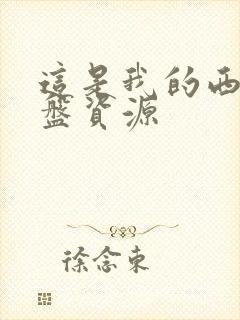 這是我的西
盤資源
徐念東